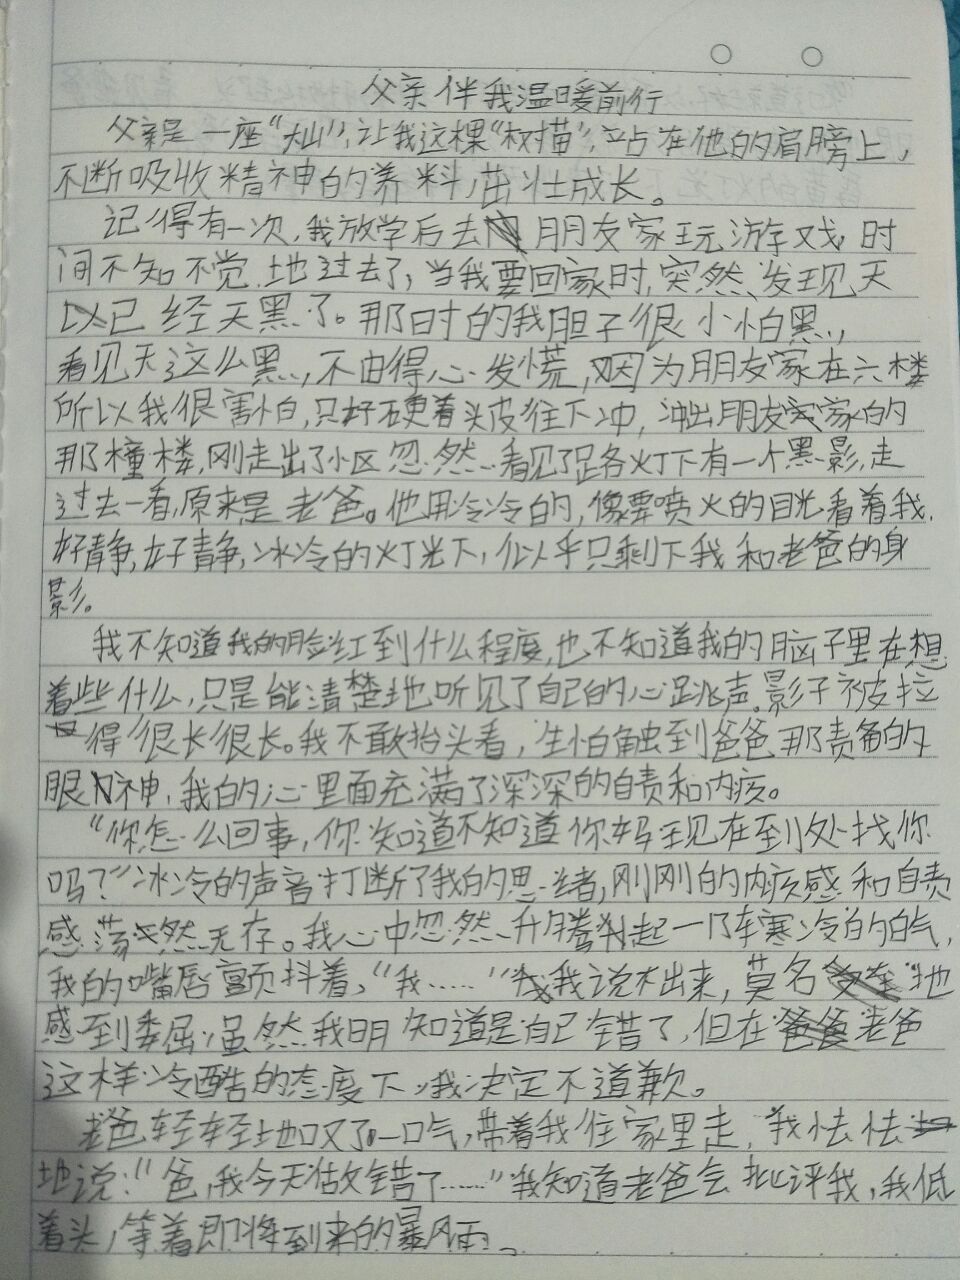 父亲伴我温暖前行
父亲是一座“大山”,让我这棵“树苗”,站在他的肩膀上,
不断吸收精神的养料,茁壮成长。
记得有一次,我放学后去朋友家玩游戏,时
间不知不觉地过去了,当我要回家时,突然发现天
已经天黑了。那时的我胆子很小怕黑,
看见天这么黑,不由得心发慌,因为朋友家在六楼
所以我很害怕,只好硬着头皮往下冲,冲出朋友家的
那橦楼,刚走出了小区忽然看见了路灯下有一个黑影,走
过去一看,原来是老爸。他用冷冷的,像要喷火的目光看着我,
好静,好静,冰冷的灯光下,似乎只剩下我和老爸的身
影。
我不知道我的脸红到什么程度,也不知道我的脑子里在想
着些什么,只是能清楚地听见了自己的心跳声。影子被拉
得很长很长。我不敢抬头看,生怕触到爸爸那责备的
眼神,我的心里面充满了深深的自责和内疚。
“你怎么回事,你知道不知道你妈现在到处找你
吗?”冰冷的声音打断了我的思绪,刚刚的内疚感和自责
感荡然无存。我心中忽然升腾起一阵寒冷的的气,
我的嘴唇颤抖着,“我……”我说不出来,莫名地
感到委屈,虽然我明知道是自己错了,但在老爸
这样冷酷的态度下,我决定不道歉。
老爸轻轻地叹了一口气,带着我往家里走,我怯怯
地说:“爸,我今天做错了……”我知道老爸会批评我,我低
着头,等着即将到来的暴风雨。